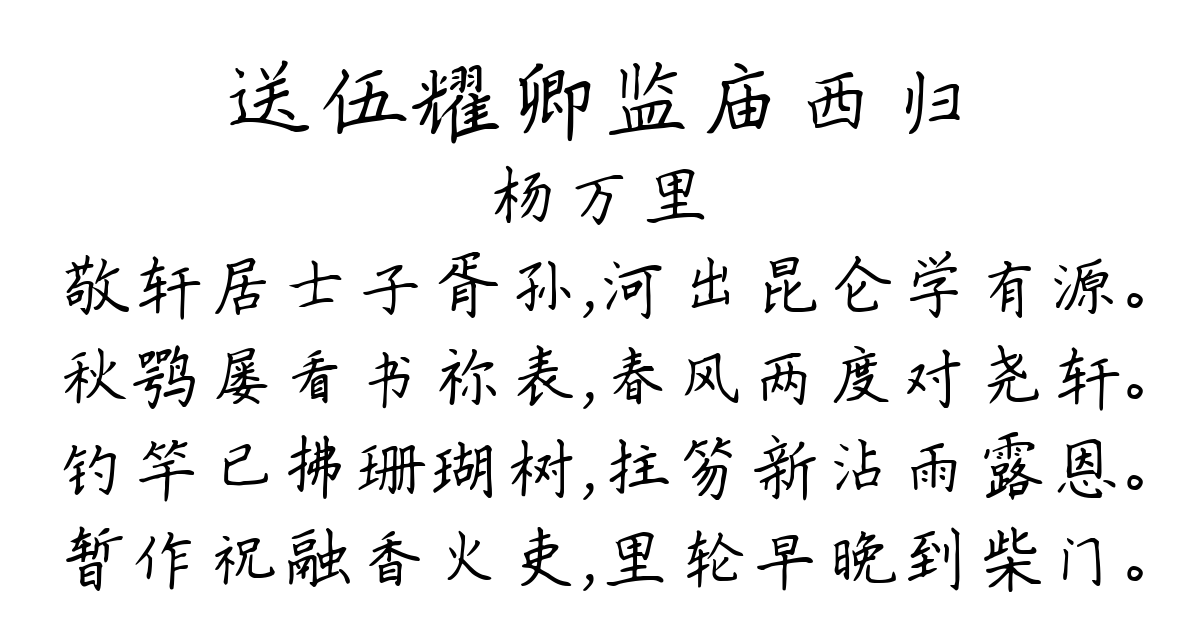 送伍耀卿监庙西归
杨万里
敬轩居士子胥孙,河出昆仑学有源。
秋鹗屡看书祢表,春风两度对尧轩。
钓竿已拂珊瑚树,拄笏新沾雨露恩。
暂作祝融香火吏,里轮早晚到柴门。